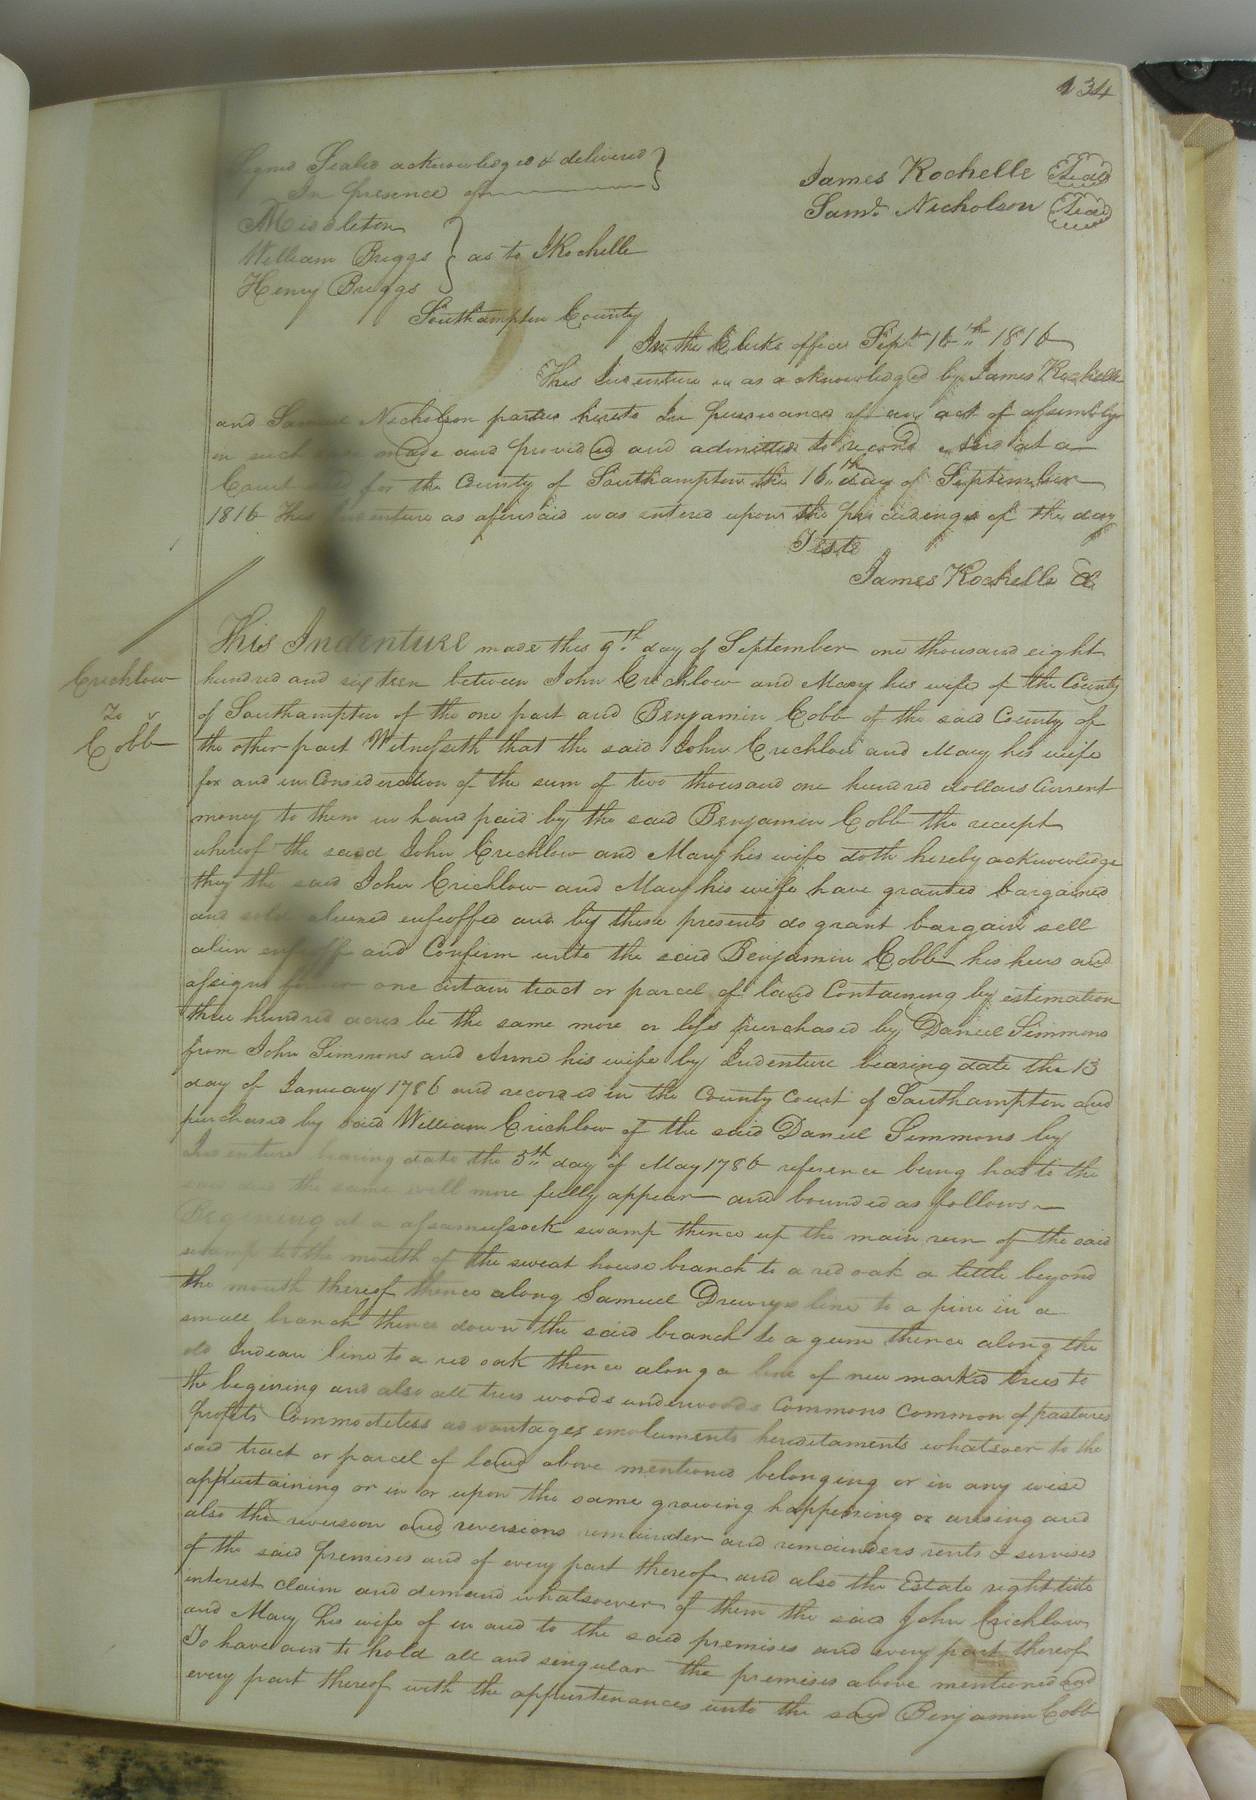 134
Signed Sealed acknowledged & delivered
In presence of
James Rochelle Seal
Saml. Nicholson Seal
Middleton
William Briggs
Henry Briggs
as to JRochelle
Southampton County
In the Clerks office Sept 16th 1816
This Indenture was acknowledged by James Rochelle
and Samuel Nicholson parties hereto In pursuance of an act of assembly
in such case made and provided and admitted to record And at a
Court held for the County of Southampton the 16th day of September
1816 This Indenture as aforesaid was entered upon the proceedings of the day
Teste
James Rochelle Cl
Crichlow
To
Cobb
This Indenture made this 9th day of September one thousand eight
hundred and sixteen between John Crichlow and Mary his wife of the County
of Southampton of the one part and Benjamin Cobb of the said County of
the other part Witnesseth that the said John Crichlow and Mary his wife
for and in Consideration of the sum of two thousand one hundred dollars Current
money to them in hand paid by the said Benjamin Cobb the receipt
whereof the said John Crichlow and Mary his wife doth hereby acknowledge
they the said John Crichlow and Mary his wife have granted bargained
and sold aliened enfeoffed and by these presents do grant bargain sell
alien enfeoff and Confirm unto the said Benjamin Cobb his heirs and
assigns forever one certain tract or parcel of land Containing by estimation
three hundred acres be the same more or less purchased by Daniel Simmons
from John Simmons and Anne his wife by Indenture bearing date the 13
day of January 1786 and recorded in the County Court of Southampton and
purchased by said William Crichlow of the said Daniel Simmons by
Indenture bearing date the 5th day of May 1786 reference being had to the
the same will more fully appear and bounded as follows
Begining at a assamussock swamp thence up the main run of the said
swamp to the mouth of the sweat house branch to a red oak a little beyond
the mouth thereof thence along Samuel Drewrys line to a pine in a
small branch thence down the said branch to a gum thence along the
old Indean line to a red oak thence along a line of new marked trees to
the begining and also all trees woods underwoods Commons Common of pastures
profits Commodetess advantages emoluments hereditaments whatsoever to the
said tract or parcel of land above mentioned belonging or in any wise
appurtaining or in or upon the same growing happening or arising and
also the reversion and reversions remainder and remainders rents & servises
of the said premises and of every part thereof and also the Estate right title
interest claim and demand whatsoever of them the said John Crichlow
and Mary his wife of in and to the said premises and every part thereof
To have and to hold all and singular the premises above mentioned and
every part thereof with the appurtenances unto the said Benjamin Cobb